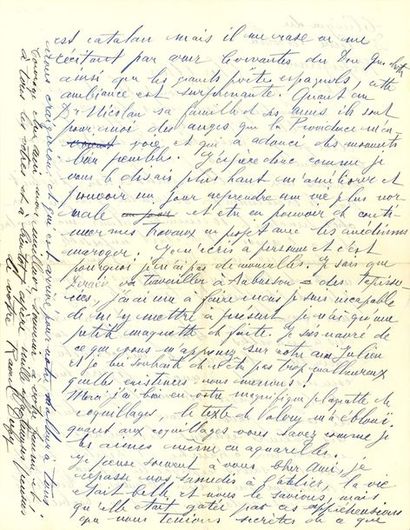 est catalan mais il me rase en me
récitant par cœur Cervantes du Don Quichotte
ainsi que les grands poètes espagnols, cette
ambiance est surprenante. Quant au
Dr Nicolau sa famille et ses amis ils sont
pour moi des anges que la Providence m'en
voie et qui adoucit des moments
bien penibles. J'espère donc comme je
vous le disais plus haut m'améliorer et
pouvoir un jour reprendre une vie plus nor
male et etre en pouvoir de conti-
nuer mes travaux en projet avec les anciennes
. Je n'écris à personne et c'est
pourquoi je n'ai pas de nouvelles. Je sais que
va travailler à Aubusson = des tapisse-
ries, j'ai à faire mais je suis incapable
de m'y mettre à présent je n'ai qu'une
petite maquette de faite. Je suis navré de
ce que vous m'apprenez sur votre ami Julien
et je lui souhaite de n'etre pas trop malheureux
quelles existences nous menons!
Merci j'ai bien eu votre magnifique plaquette de
coquillages, le texte de Valery m'a ébloui
quant aux coquillages vous savez comme je
les aimes meme en aquarelles.
Je pense souvent à vous, cher Ami, je
repasse nos samedis à l'atelier, la vie
était belle et nous le savions, mais
qu'elle était gatée par ces appréhensions
que nous tenions secretes de ce que
nous craignions et qui est arrivé pour notre malheur à tous
Courage cher ami mon meilleur souvenir à votre femme et
à tous les votres et à bientot
le votre Raoul Dufy